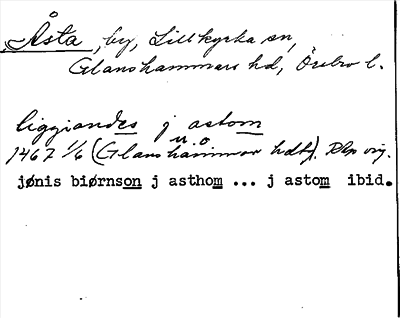 Åsta, by, Lillkyrka sn,
Glanshammars hd, Örebro l.
liggiandes j astom
1467 1/6 (Glanshammar hdtf). RAp orig.
jønis biørnson j asthom ... j astom ibid.